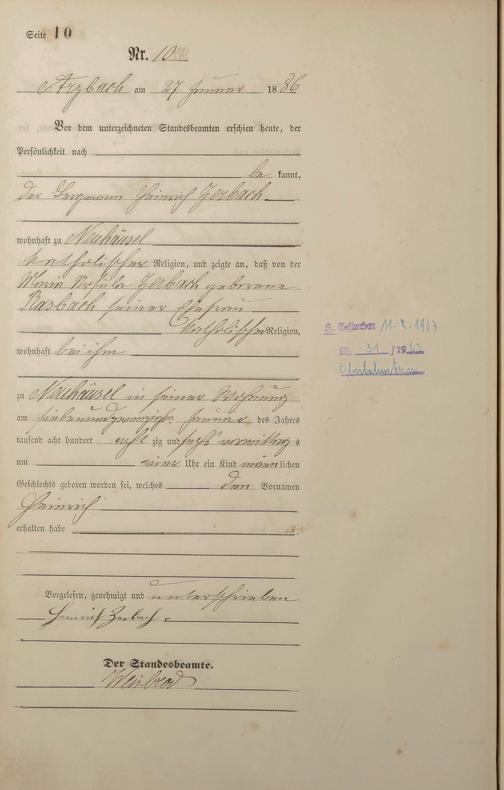 Seite 10
Nr. 10
Arzbach am 27 Januar 1886
Vor dem unterzeichneten Standesbeamten erschien heute, der
Persönlichkeit nach
be kannt,
der Bergmann Heinrich Zerbach
wohnhaft zu Neuhäusel
katholischer Religion, und zeigte an, daß von der
Maria Zerbach geborene
Rasbach seiner Ehefrau
katholischer Religion,
wohnhaft bei ihm
zu Neuhäusel in seiner Wohnung
am siebenundzwanzigsten Januar des Jahres
tausend acht hundert acht zig und sechs vormittag s
um eins Uhr ein Kind männlichen
Geschlechts geboren worden sei, welches den Vornamen
Heinrich
erhalten habe
Vorgelesen, genehmigt und unterschrieben
Heinrich Zerbach
Der Standesbeamte.
Weisbrod
Gestorben 11.2.1963
Nr. 31 /1963